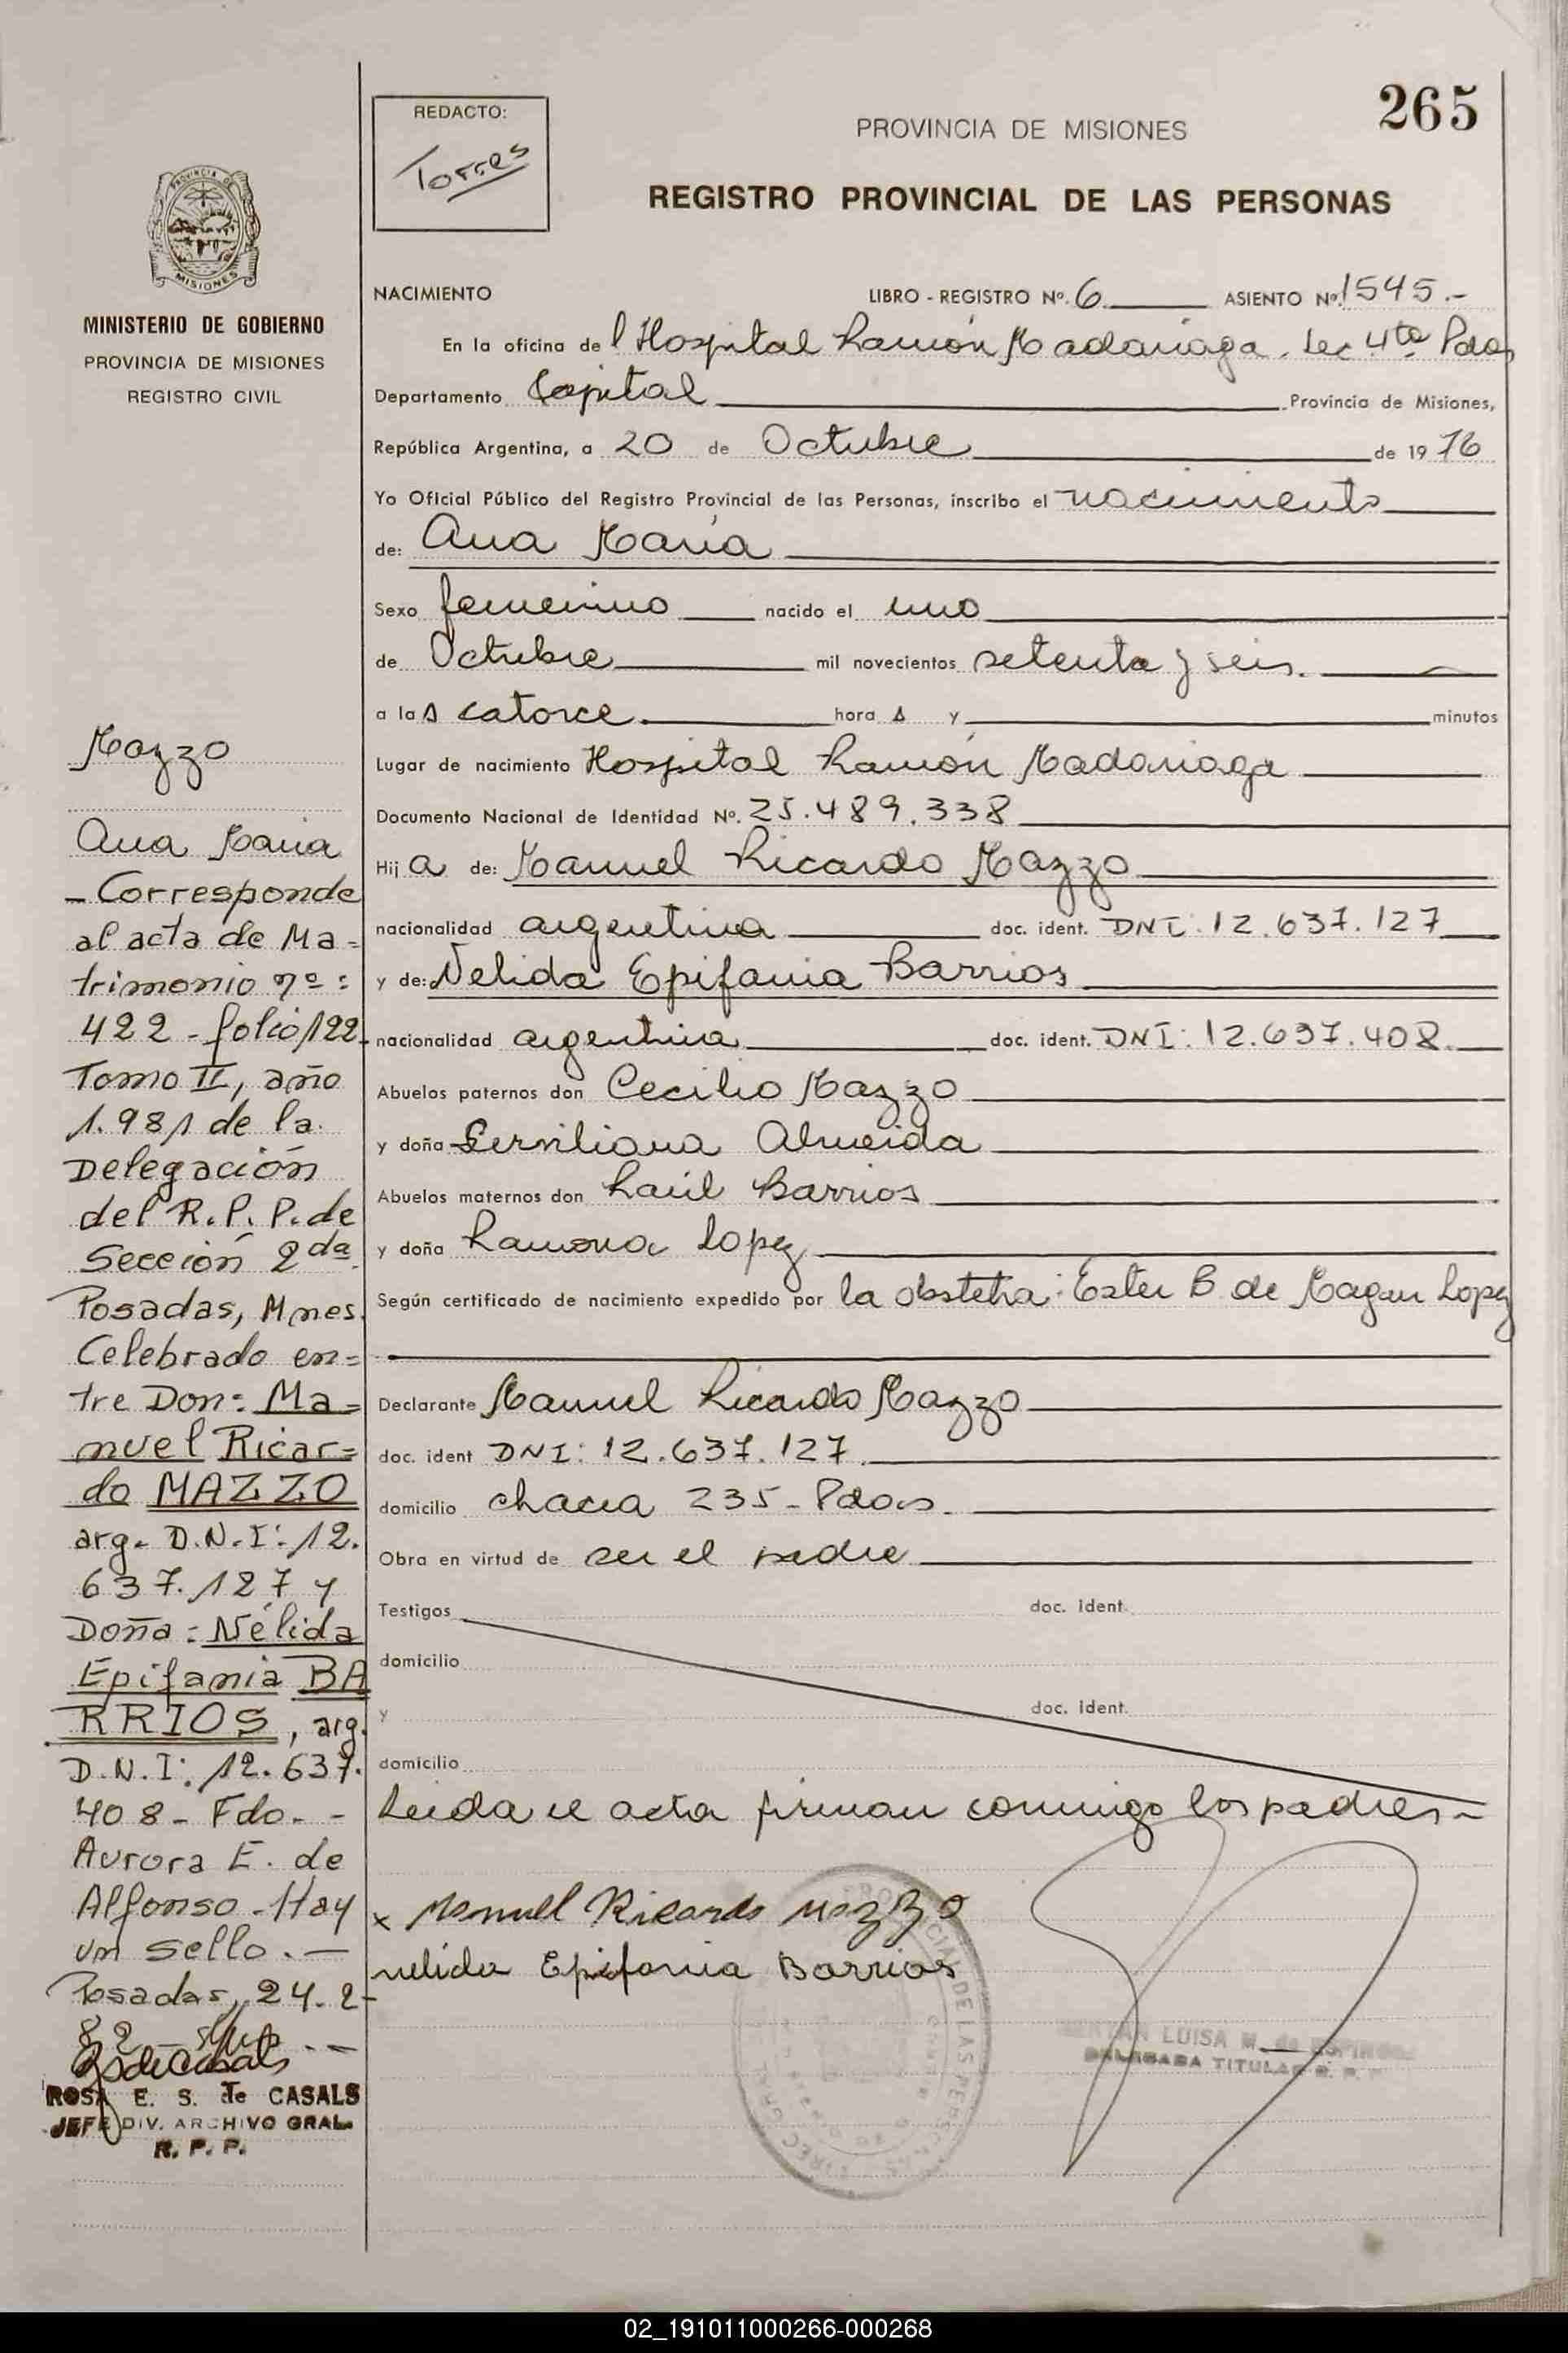 265
REDACTO:
Torres
PROVINCIA DE MISIONES
REGISTRO PROVINCIAL DE LAS PERSONAS
PROVINCIA DE
MISIONES
MINISTERIO DE GOBIERNO
PROVINCIA DE MISIONES
REGISTRO CIVIL
NACIMIENTO LIBRO - REGISTRO Nº. 6 ASIENTO Nº. 1545.-
En la oficina del Hospital Ramón Madariaga. Sec 4ta Pdas
Departamento Capital Provincia de Misiones,
República Argentina, a 20 de Octubre de 1976
Yo Oficial Público del Registro Provincial de las Personas, inscribo el nacimiento
de: Ana María
Sexo femenino nacido el uno
de Octubre mil novecientos setenta y seis.
a las catorce hora s y minutos
Lugar de nacimiento Hospital Ramón Madariaga
Documento Nacional de Identidad Nº. 25.489.338
Hij a de: Manuel Ricardo Mazzo
nacionalidad argentina doc. ident. DNI: 12.637.127
y de: Nelida Epifania Barrios
nacionalidad argentina doc. ident. DNI: 12.637.408.
Abuelos paternos don Cecilio Mazzo
y doña Serviliana Almeida
Abuelos maternos don Raúl Barrios
y doña Ramona Lopez
Según certificado de nacimiento expedido por la obstetra: Ester B. de Lopez
Declarante Manuel Ricardo Mazzo
doc. ident DNI: 12.637.127.
domicilio chacra 235 - Pdas.
Obra en virtud de ser el padre
Testigos doc. ident.
domicilio
y doc. ident.
domicilio
Leida el acta firman conmigo los padres.-
x Manuel Ricardo Mazzo
nelida Epifania Barrios
LUISA M. de
DELEGADA TITULAR R. P. P.
Mazzo
Ana Maria
- Corresponde
al acta de Ma=
trimonio nº:
422 - folio 122
Tomo II, año
1.981 de la
Delegación
del R.P.P. de
Sección 2da.
Posadas, Mnes.
Celebrado en=
tre Don: Ma=
nuel Ricar=
do MAZZO
arg. D.N.I: 12.
637.127 y
Doña: Nélida
Epifania BA
RRIOS, arg.
D.N.I: 12.637.
408 - Fdo. -
Aurora E. de
Alfonso - Hay
un sello. -
Posadas, 24-2-
82
ROSA E. S. de CASALS
JEFE DIV. ARCHIVO GRAL.
R. P. P.
02_191011000266-000268